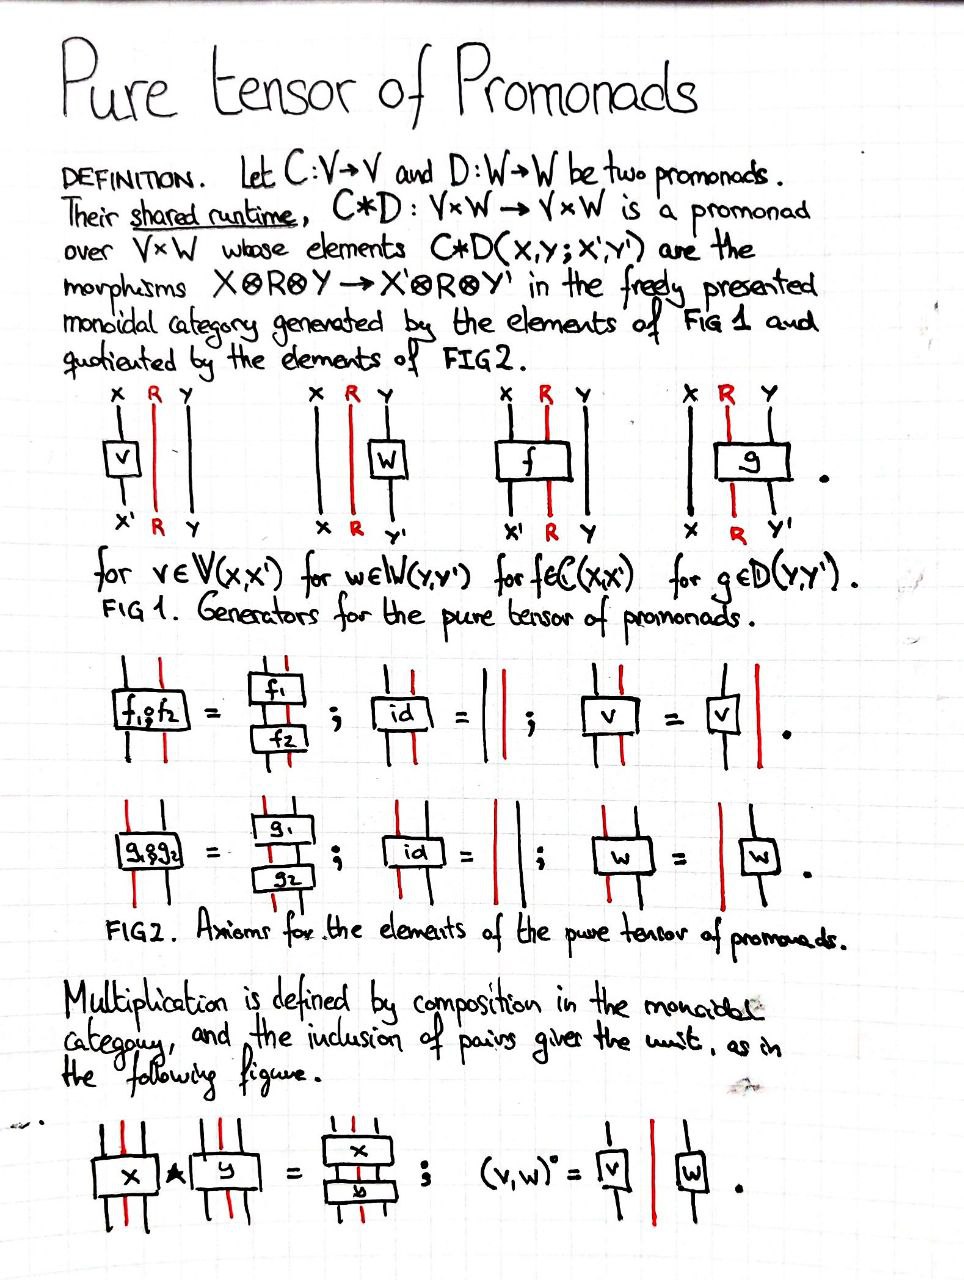 Pure tensor of Promonads
DEFINITION. Let C:V→V and D:W→W be two promonads.
Their shared runtime, C*D : V×W → V×W is a promonad
over V×W whose elements C*D(X,Y; X',Y') are the
morphisms X⊗R⊗Y → X'⊗R⊗Y' in the freely presented
monoidal category generated by the elements of FIG 1 and
quotiented by the elements of FIG 2.
X R Y X R Y X R Y X R Y
v w f g .
X' R Y X R Y' X' R Y X R Y'
for v∈V(X,X') for w∈W(Y,Y') for f∈C(X,X') for g∈D(Y,Y').
FIG 1. Generators for the pure tensor of promonads.
f₁⨾f₂ = f₁ f₂ ; id = ; v = v .
g₁⨾g₂ = g₁ g₂ ; id = ; w = w .
FIG 2. Axioms for the elements of the pure tensor of promonads.
Multiplication is defined by composition in the monoidal
category, and the inclusion of pairs gives the unit, as in
the following figure.
x ★ y = x y ; (v,w)° = v w .